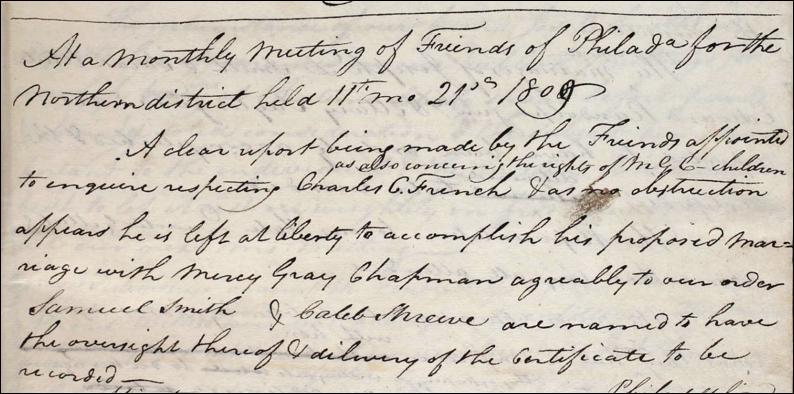 At a Monthly Meeting of Friends of Philada for the
Northern district held 11th mo 21st 1809
A clear report being made by the Friends appointed
as also concerning the rights of M G C- children
to enquire respecting Charles C. French & as no obstruction
appears he is left at liberty to accomplish his proposed mar=
riage with Mercy Gray Chapman agreably to our order
Samuel Smith & Caleb Shreeve are named to have
the oversight thereof & dilivery of the Certificate to be
recorded—